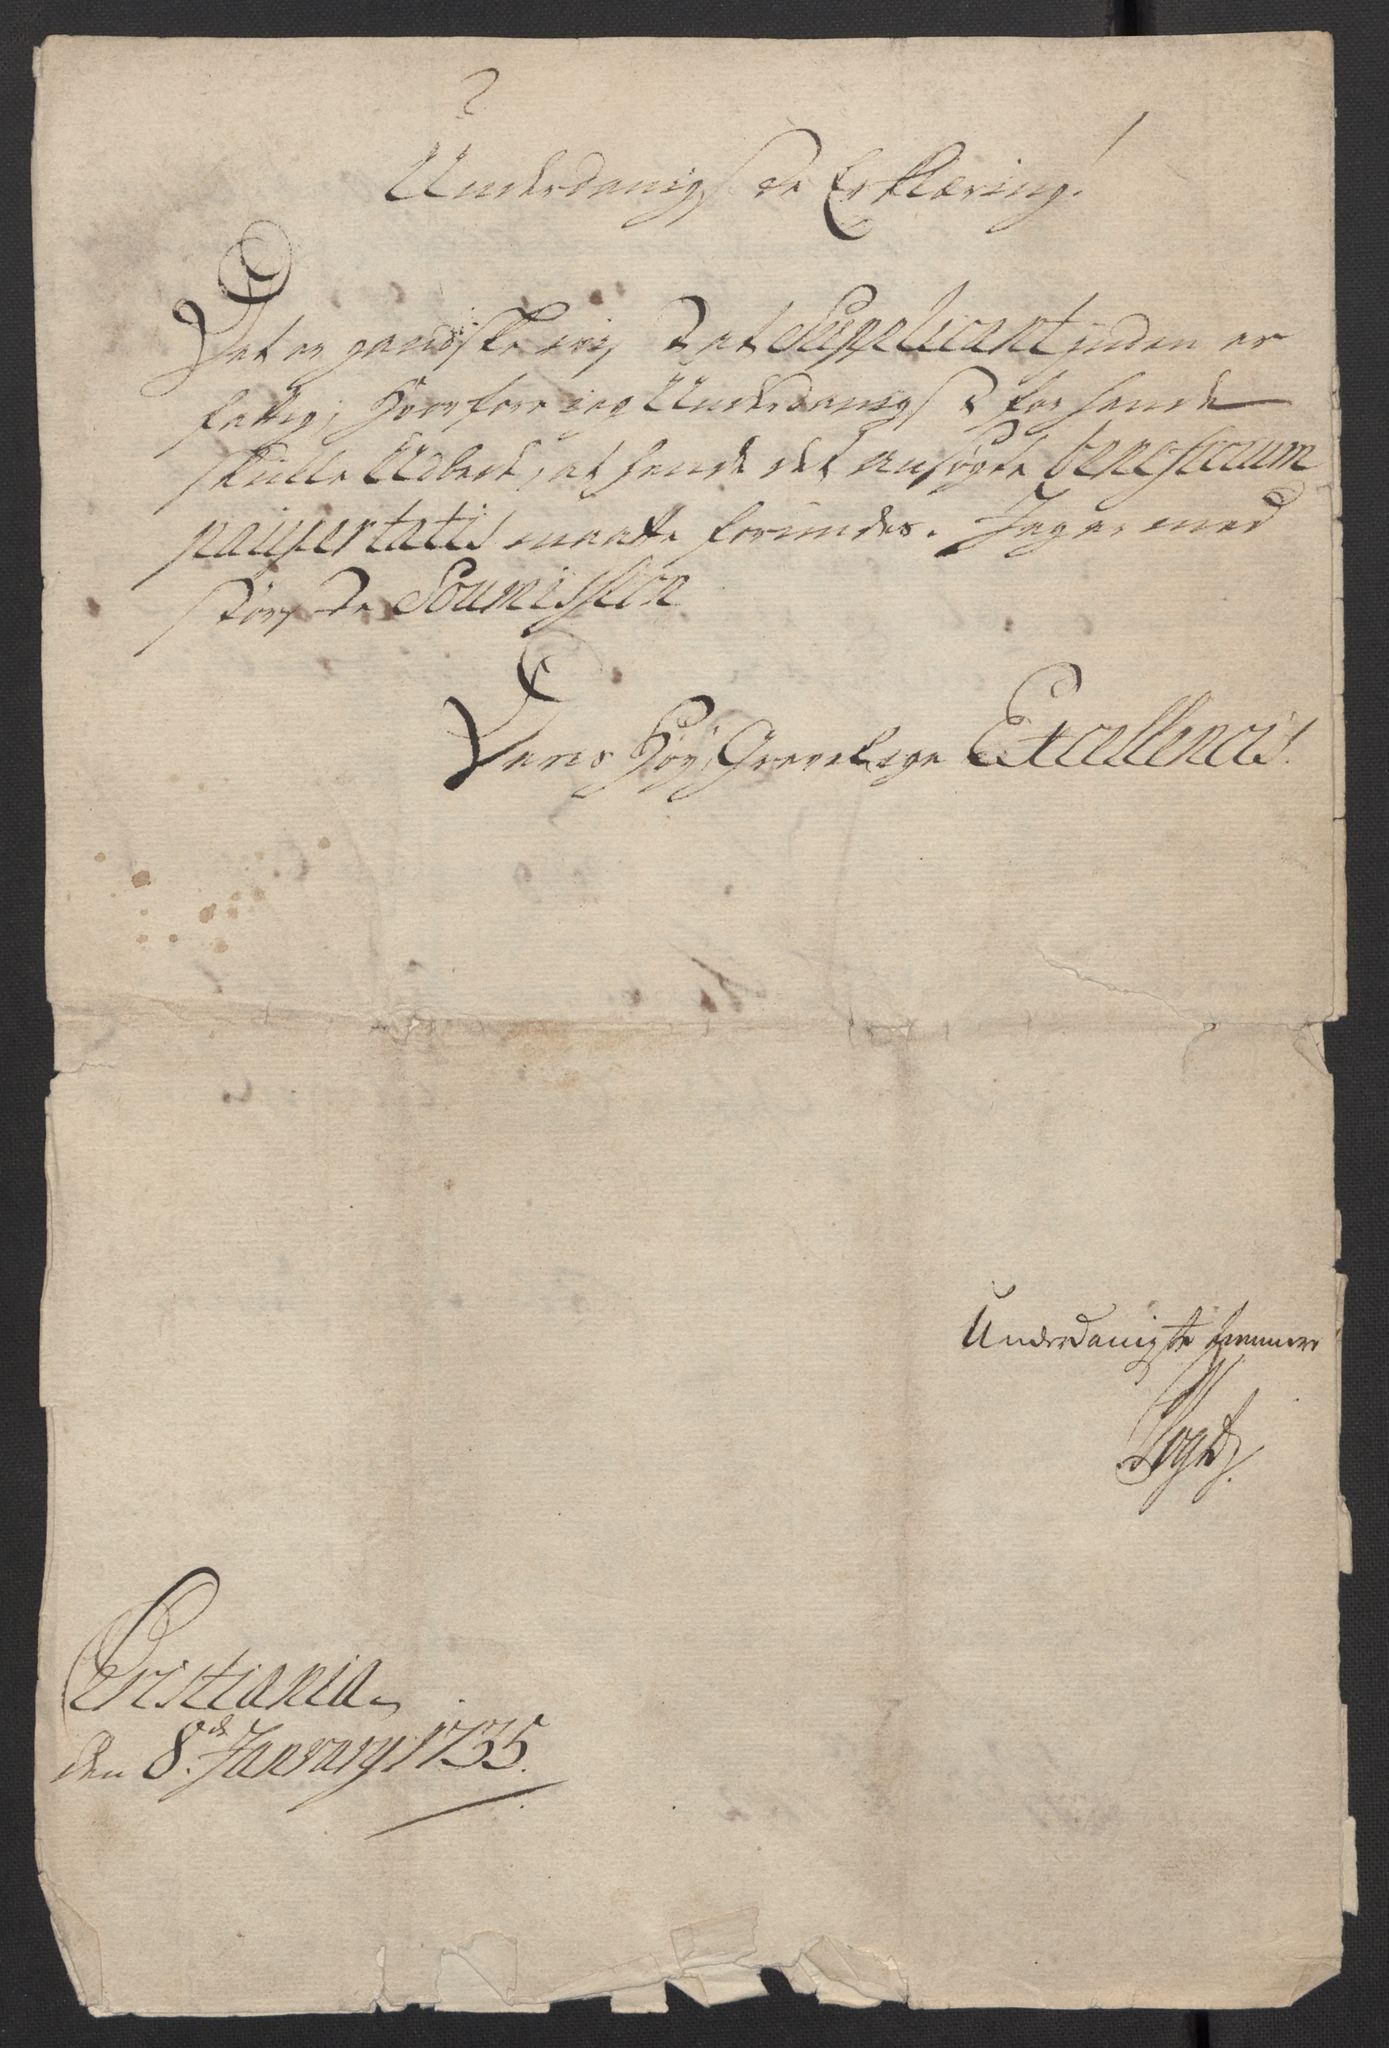 Underdanigste Erklæring!
Det er gandske vist at Supplicantinden er
fattig, hvorfore jeg Underdanigst for hende
skulle Udbede, at hende det ansøgte beneficium
paupertatis maatte forundes. Jeg er med
største Soumission
Deres Høy Grevelige Excellences
Underdanigste tiennere
Vogt
Christiania
den 8de January 1735.